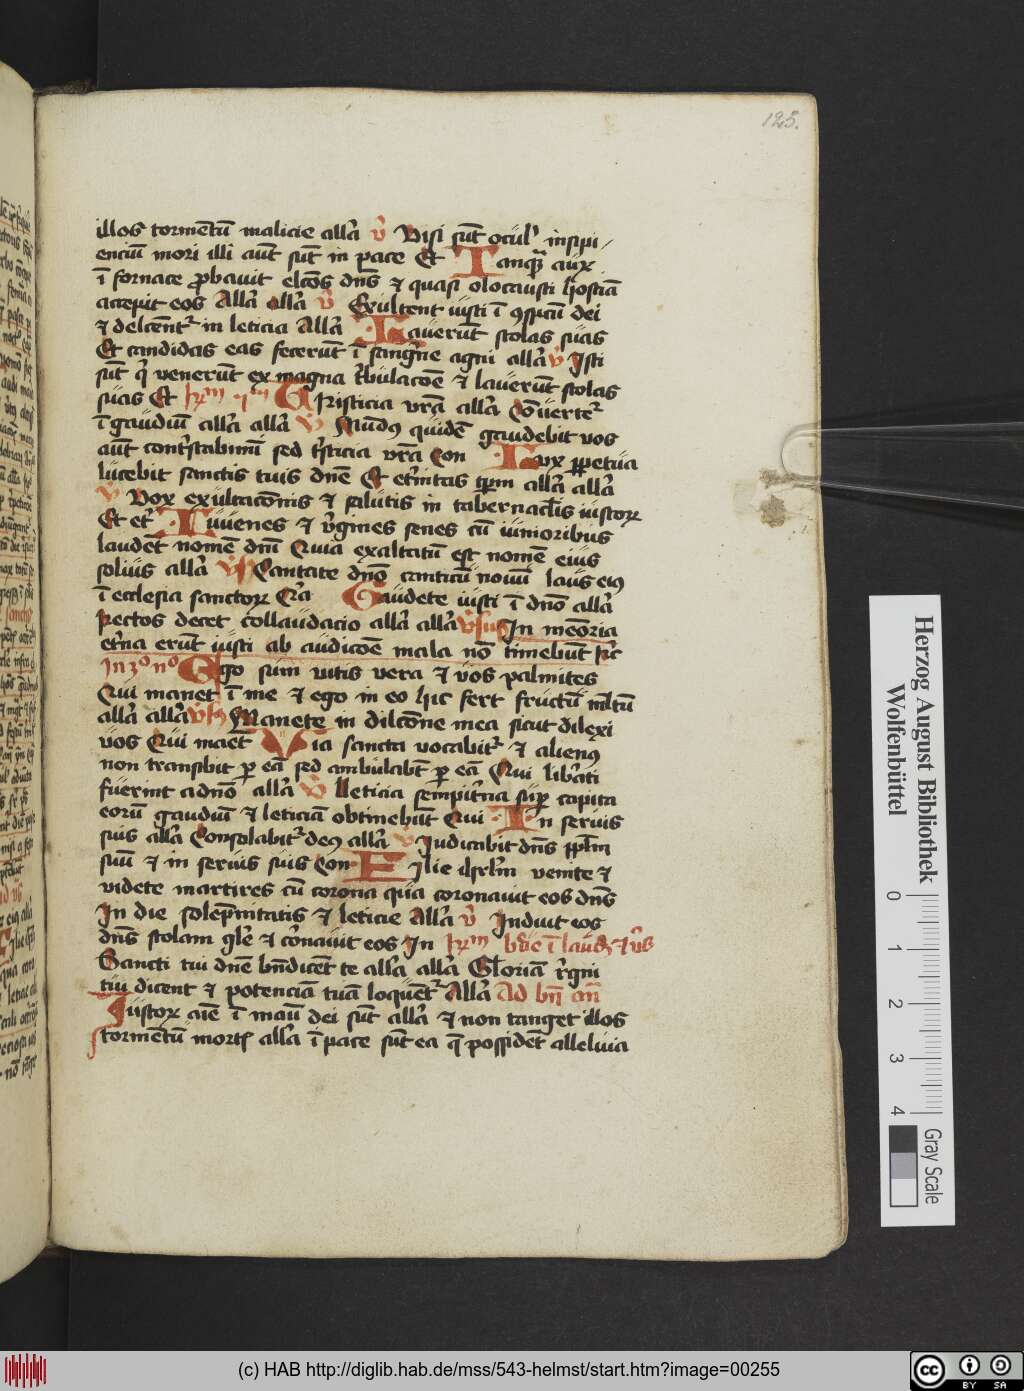 125.
illos tormētū malicie allā v̄ Visi sūt ocul' insipi/
enciū mori illi aūt sūt in pace Et Tanq̄ȝ aūꝝ
ī fornace p̄bavit elc̄os dn̄s ⁊ quasi olocausti hostiā
accepit eos Allā allā v̄ Exultent iusti ī ꝯspcū dei
⁊ delcēnt᷑ in leticia Allā Laverūt stolas suas
Et candidas eas fecerūt ī sangⁱne agni allā v̄ Isti
sūt q̄ venerūt ex magna tⁱbulacōe ⁊ laverūt stolas
suas Et Tristicia vrā allā Cōvertet᷑
ī gaudiū allā allā v̄ Mund9 quidē gaudebit vos
aūt contⁱstabimī sed tⁱsticia vrā Con Lux ꝑpetua
lucebit sanctis tuis dnē Et et̄nitas tp̄m allā allā
v̄ Vox exultacōnis ⁊ salutis in tabernacl̄is iustoꝝ
Et et̄ Iuvenes ⁊ v̄gines senes cū iunioribus
laudēt nomē dnī Quia exaltatū est nomē eius
solius allā v̄s Cantate dnō canticū novū laus ei9
ī ecclesia sanctoꝝ Cā Gaudete iusti ī dnō allā
Rectos decet collaudacio allā allā v̄sus In meōria
et̄na erūt iusti ab audicōe mala nō timebūt
In 3⁰ n⁰ Ego sum vitis vera ⁊ vos palmites
Qui manet ī me ⁊ ego in eo hic fert fructū ml̄tū
allā allā v̄s Manete in dilcōne mea sicut dilexi
vos Qui maēt Via sancta vocabit᷑ ⁊ alien9
non transibit ꝑ eā sed ambulabt̄ ꝑ eā Qui libⁱati
fuerint a dnō allā v̄ Leticia sempit̄na suꝑ capita
eorū gaudiū ⁊ leticiā obtinebūt Qui In servis
suis allā Consolabit᷑ de9 allā v̄ Iudicabit dn̄s ppl̄m
suū ⁊ in servis suis Con Filie ihrl̄m venite ⁊
videte martires cū corona qua coronavit eos dn̄s
In die solēpnitatis ⁊ leticie Allā v̄ Induit eos
dn̄s stolam gl̄e ⁊ cōnavit eos In
Sancti tui dnē bn̄dicēt te allā allā Gloriā rⁱgni
tui dicent ⁊ potenciā tuā loquēt᷑ Allā Ad bn̄ an̄
Iustoꝝ aīe ī manū dei sūt allā ⁊ non tanget illos
tormētū mortꝭ allā ī pace sūt ea q̄ possidēt alleluia
Herzog August Bibliothek
Wolfenbüttel
0 1 2 3 4
Gray Scale
(c) HAB http://diglib.hab.de/mss/543-helmst/start.htm?image=00255
cc BY SA